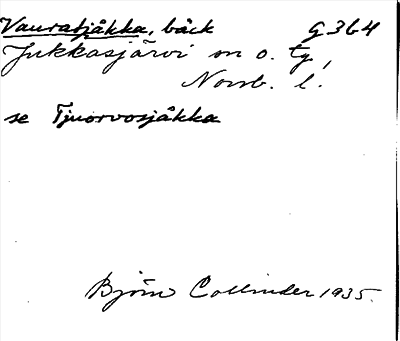 Vauratjåkka, bäck G 364
Jukkasjärvi sn o. tg,
Norrb. l.
se Tjuorvosjåkka
Björn Collinder 1935.